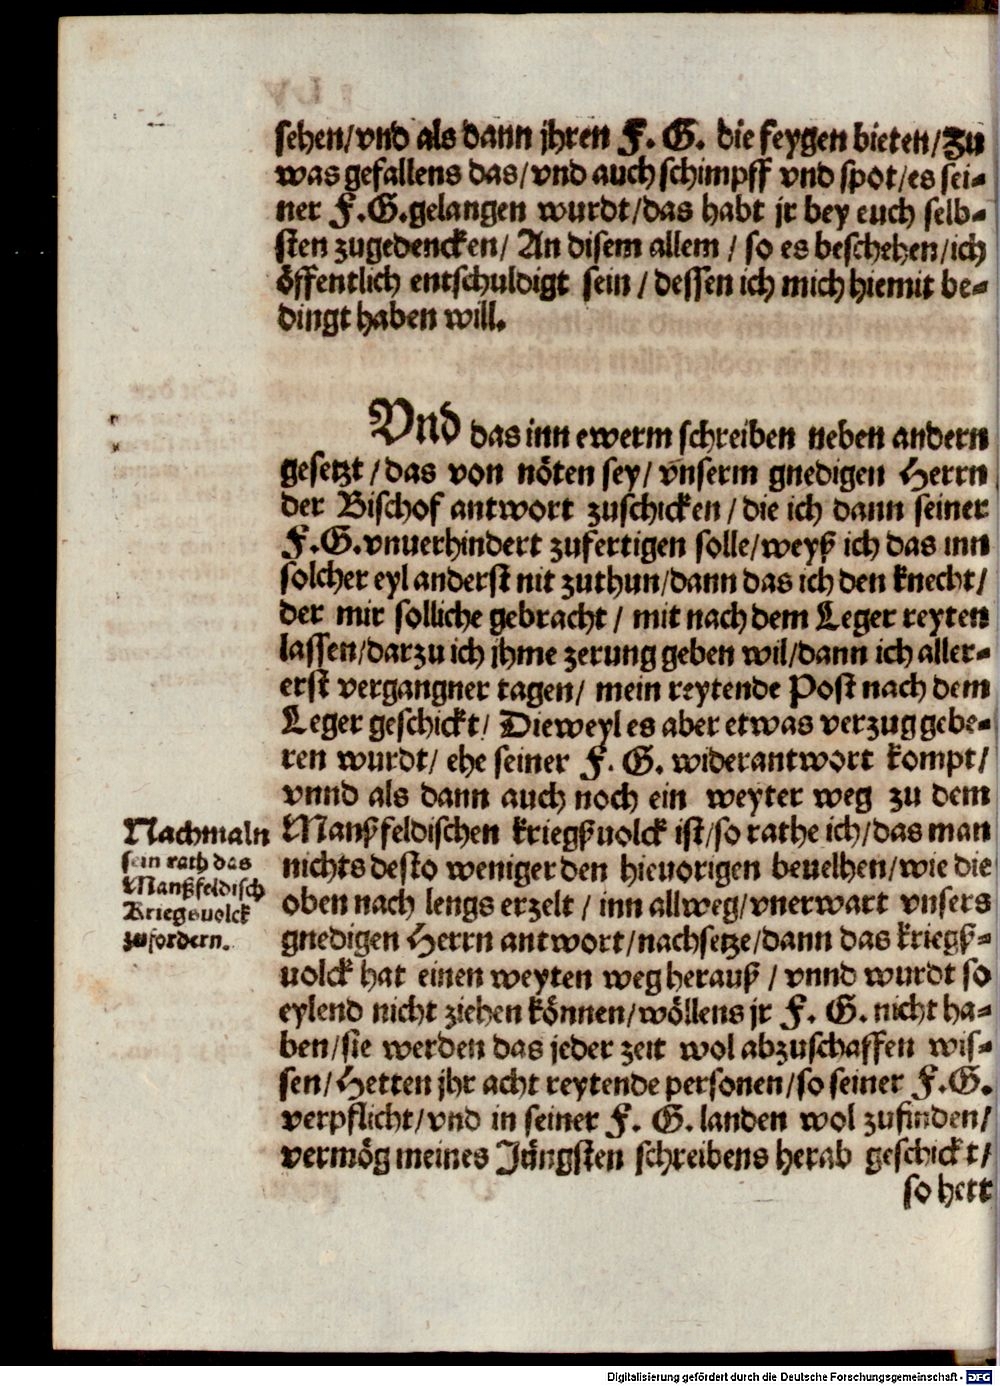 sehen/vnd als dann jhren F. G. die feygen bieten/Zu
was gefallens das/vnd auch schimpff vnd spot/es sei-
ner F.G.gelangen wurdt/das habt jr bey euch selb-
sten zugedencken/ An disem allem / so es beschehen/ich
öffentlich entschuldigt sein / dessen ich mich hiemit be-
dingt haben will.
Vnd das inn ewerm schreiben neben andern
gesetzt /das von nöten sey/ vnserm gnedigen Herrn
der Bischof antwort zuschicken / die ich dann seiner
F.G.vnuerhindert zufertigen solle/weyß ich das inn
solcher eyl anderst nit zuthun/dann das ich den knecht/
der mir solliche gebracht / mit nach dem Leger reyten
lassen/darzu ich jhme zerung geben wil/dann ich aller-
erst vergangner tagen/ mein reytende Post nach dem
Leger geschickt/ Dieweyl es aber etwas verzug gebe-
ren wurdt/ ehe seiner F. G. widerantwort kompt/
vnnd als dann auch noch ein weyter weg zu dem
Manßfeldischen kriegßuolck ist/so rathe ich/das man
nichts desto weniger den hieuorigen beuelhen/wie die
oben nach lengs erzelt / inn allweg/vnerwart vnsers
gnedigen Herrn antwort/nachsetze/dann das kriegß-
uolck hat einen weyten weg herauß / vnnd wurdt so
eylend nicht ziehen können/wöllens jr F. G. nicht ha-
ben/sie werden das jeder zeit wol abzuschaffen wis-
sen/Hetten jhr acht reytende personen/so seiner F.G.
verpflicht/vnd in seiner F. G. landen wol zufinden/
vermög meines Jüngsten schreibens herab geschickt/
so hett
Nachmaln
sein rath das
Manßfeldisch
Kriegsuolck
zufordern.
Digitalisierung gefördert durch die Deutsche Forschungsgemeinschaft - DFG